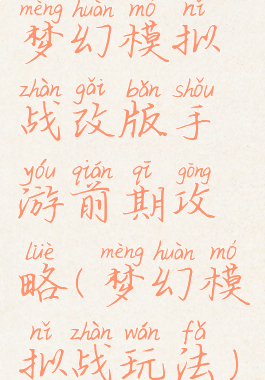 mèng huàn mó nǐ
梦幻模拟
zhàn gǎi bǎn shǒu
战改版手
yóu qián qī gōng
游前期攻
lüè mèng huàn mó
略(梦幻模
nǐ zhàn wán fǎ
拟战玩法)